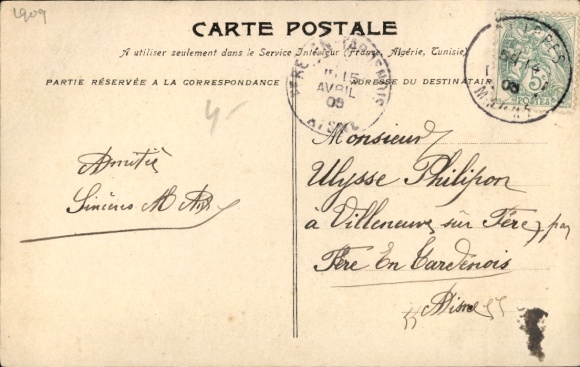 1909
CARTE POSTALE
A utiliser seulement dans le Service Intérieur (France, Algérie, Tunisie)
PARTIE RÉSERVÉE A LA CORRESPONDANCE
ADRESSE DU DESTINATAIRE
FÈRE-EN-TARDENOIS
15
AVRIL
09
AISNE
09
5
POSTES
4-
Amitié
Sincères M
Monsieur
Ulysse Philipon
à Villeneuve sur Fère, par
Fère En Tardenois
Aisne